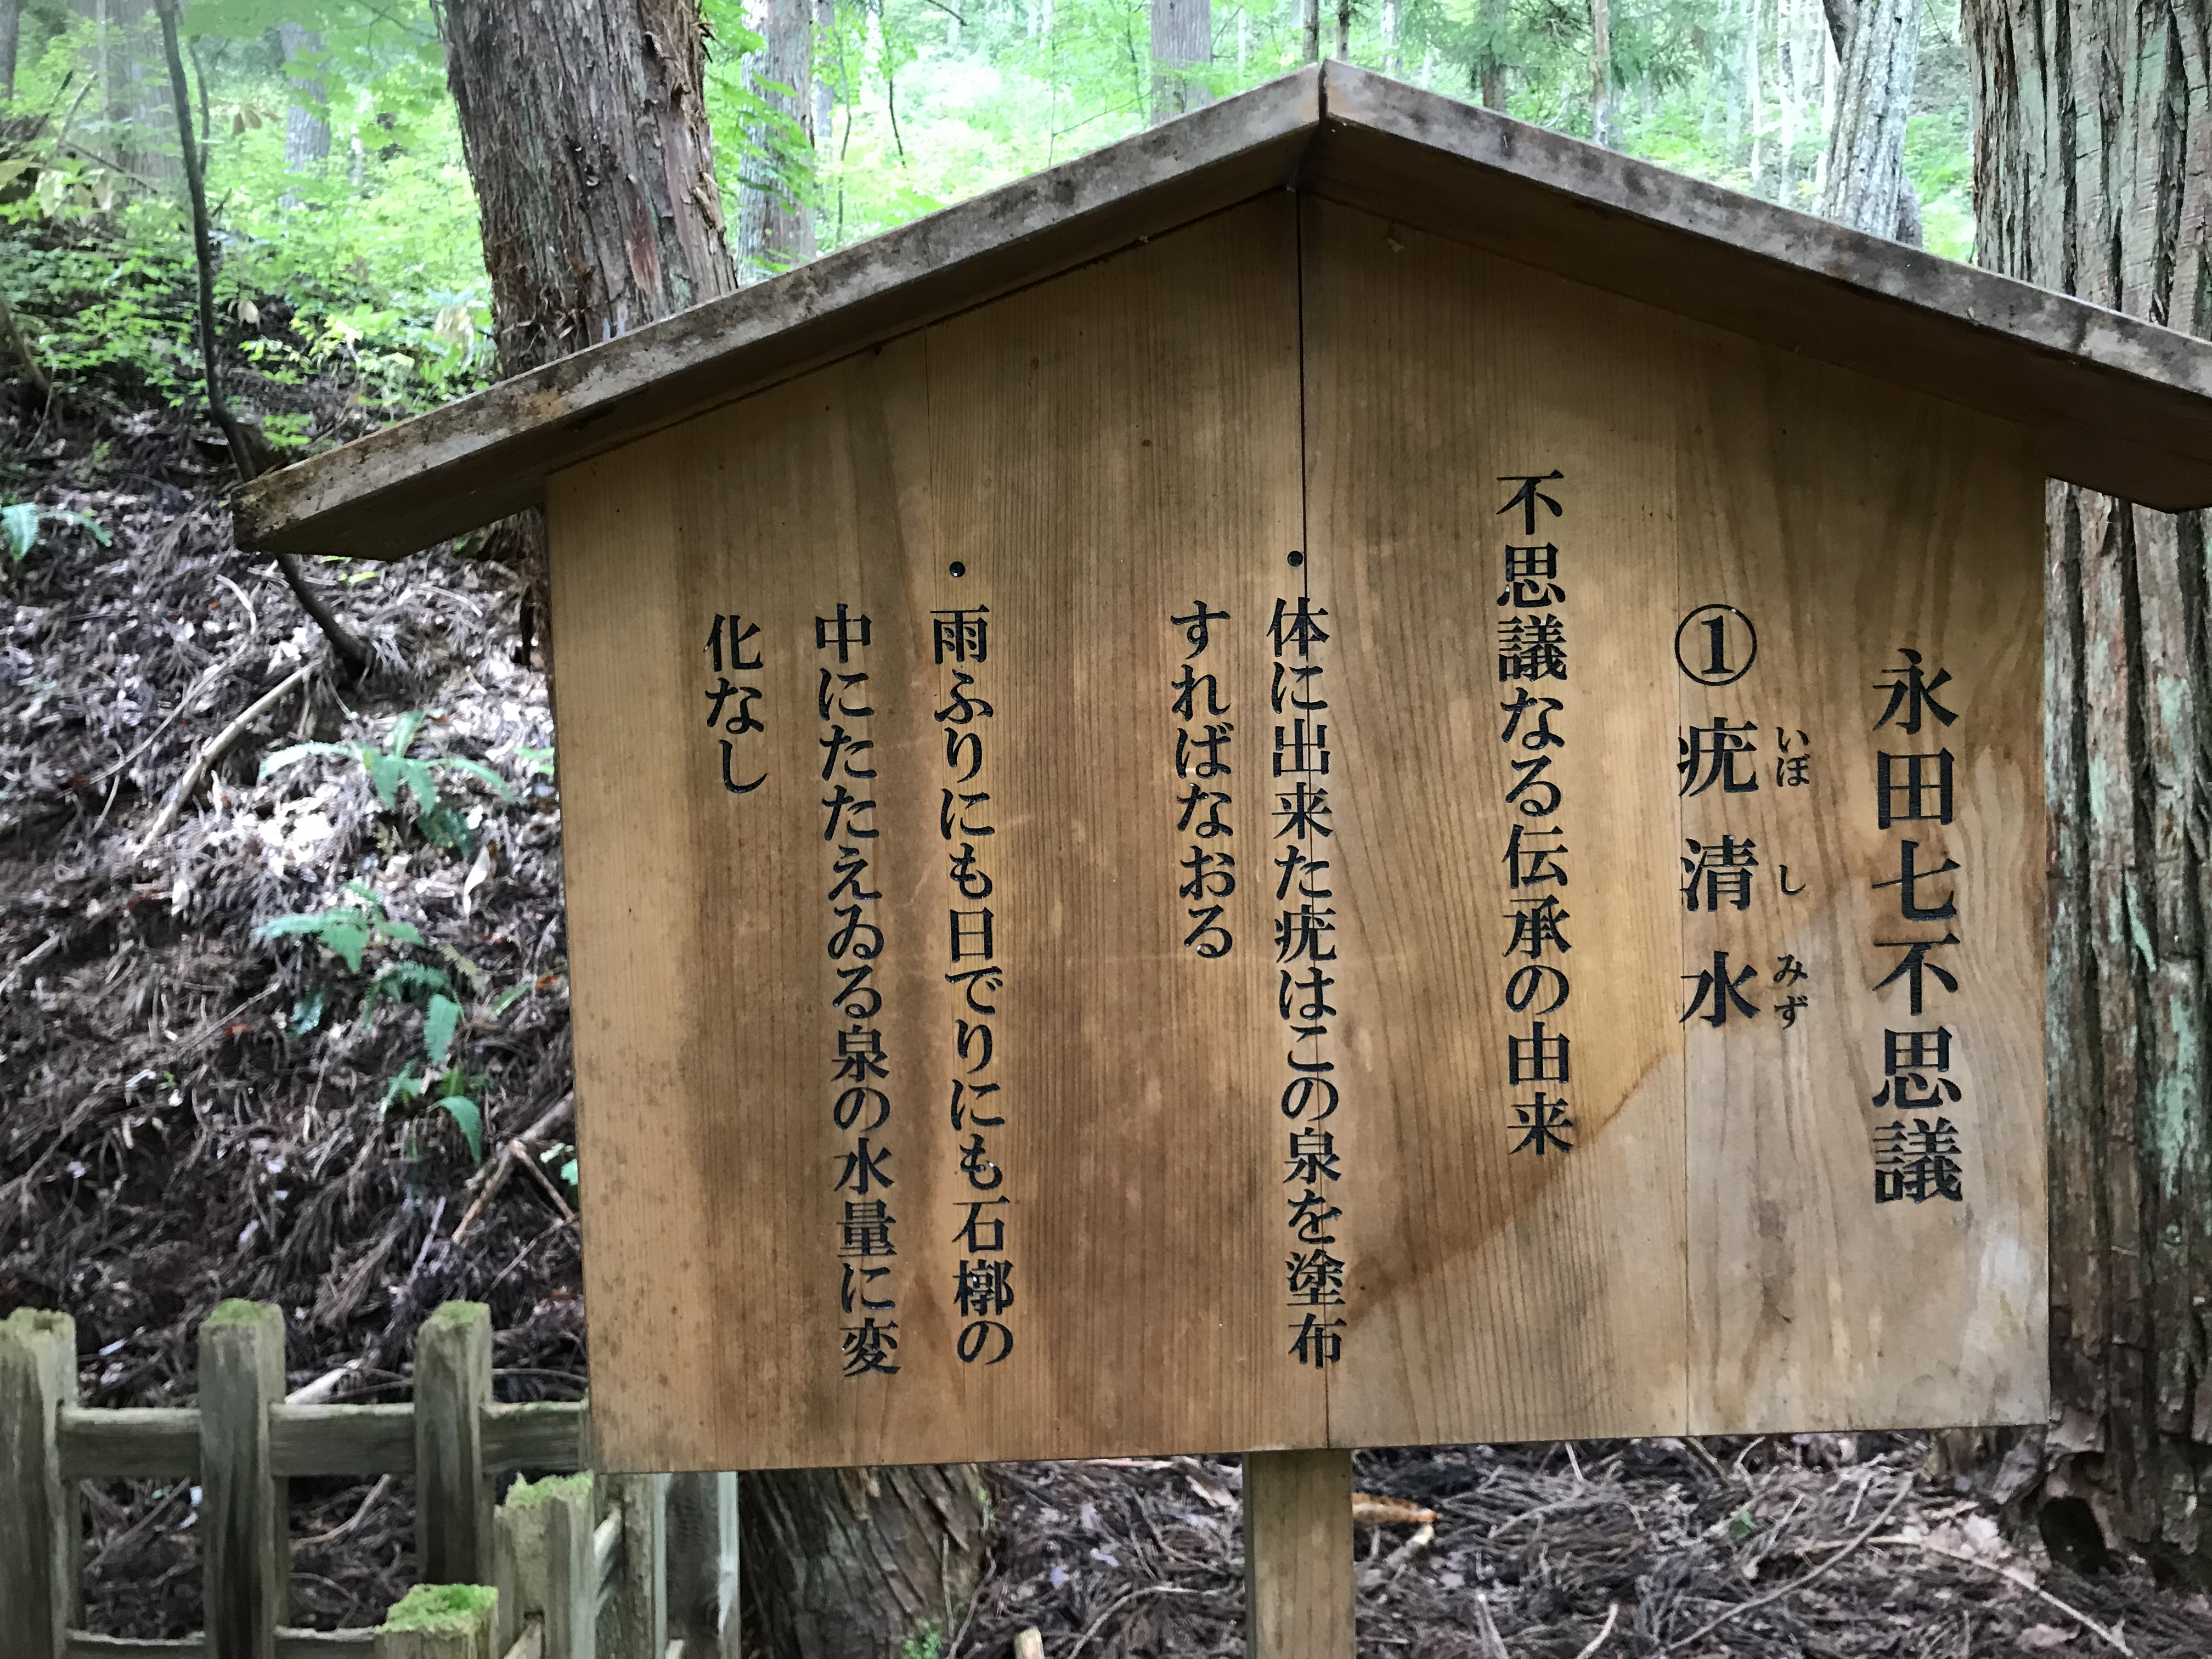 永田七不思議
①疣清水
いぼしみず
不思議なる伝承の由来
・体に出来た疣はこの泉を塗布
すればなおる
・雨ふりにも日でりにも石槨の
中にたたえゐる泉の水量に変
化なし